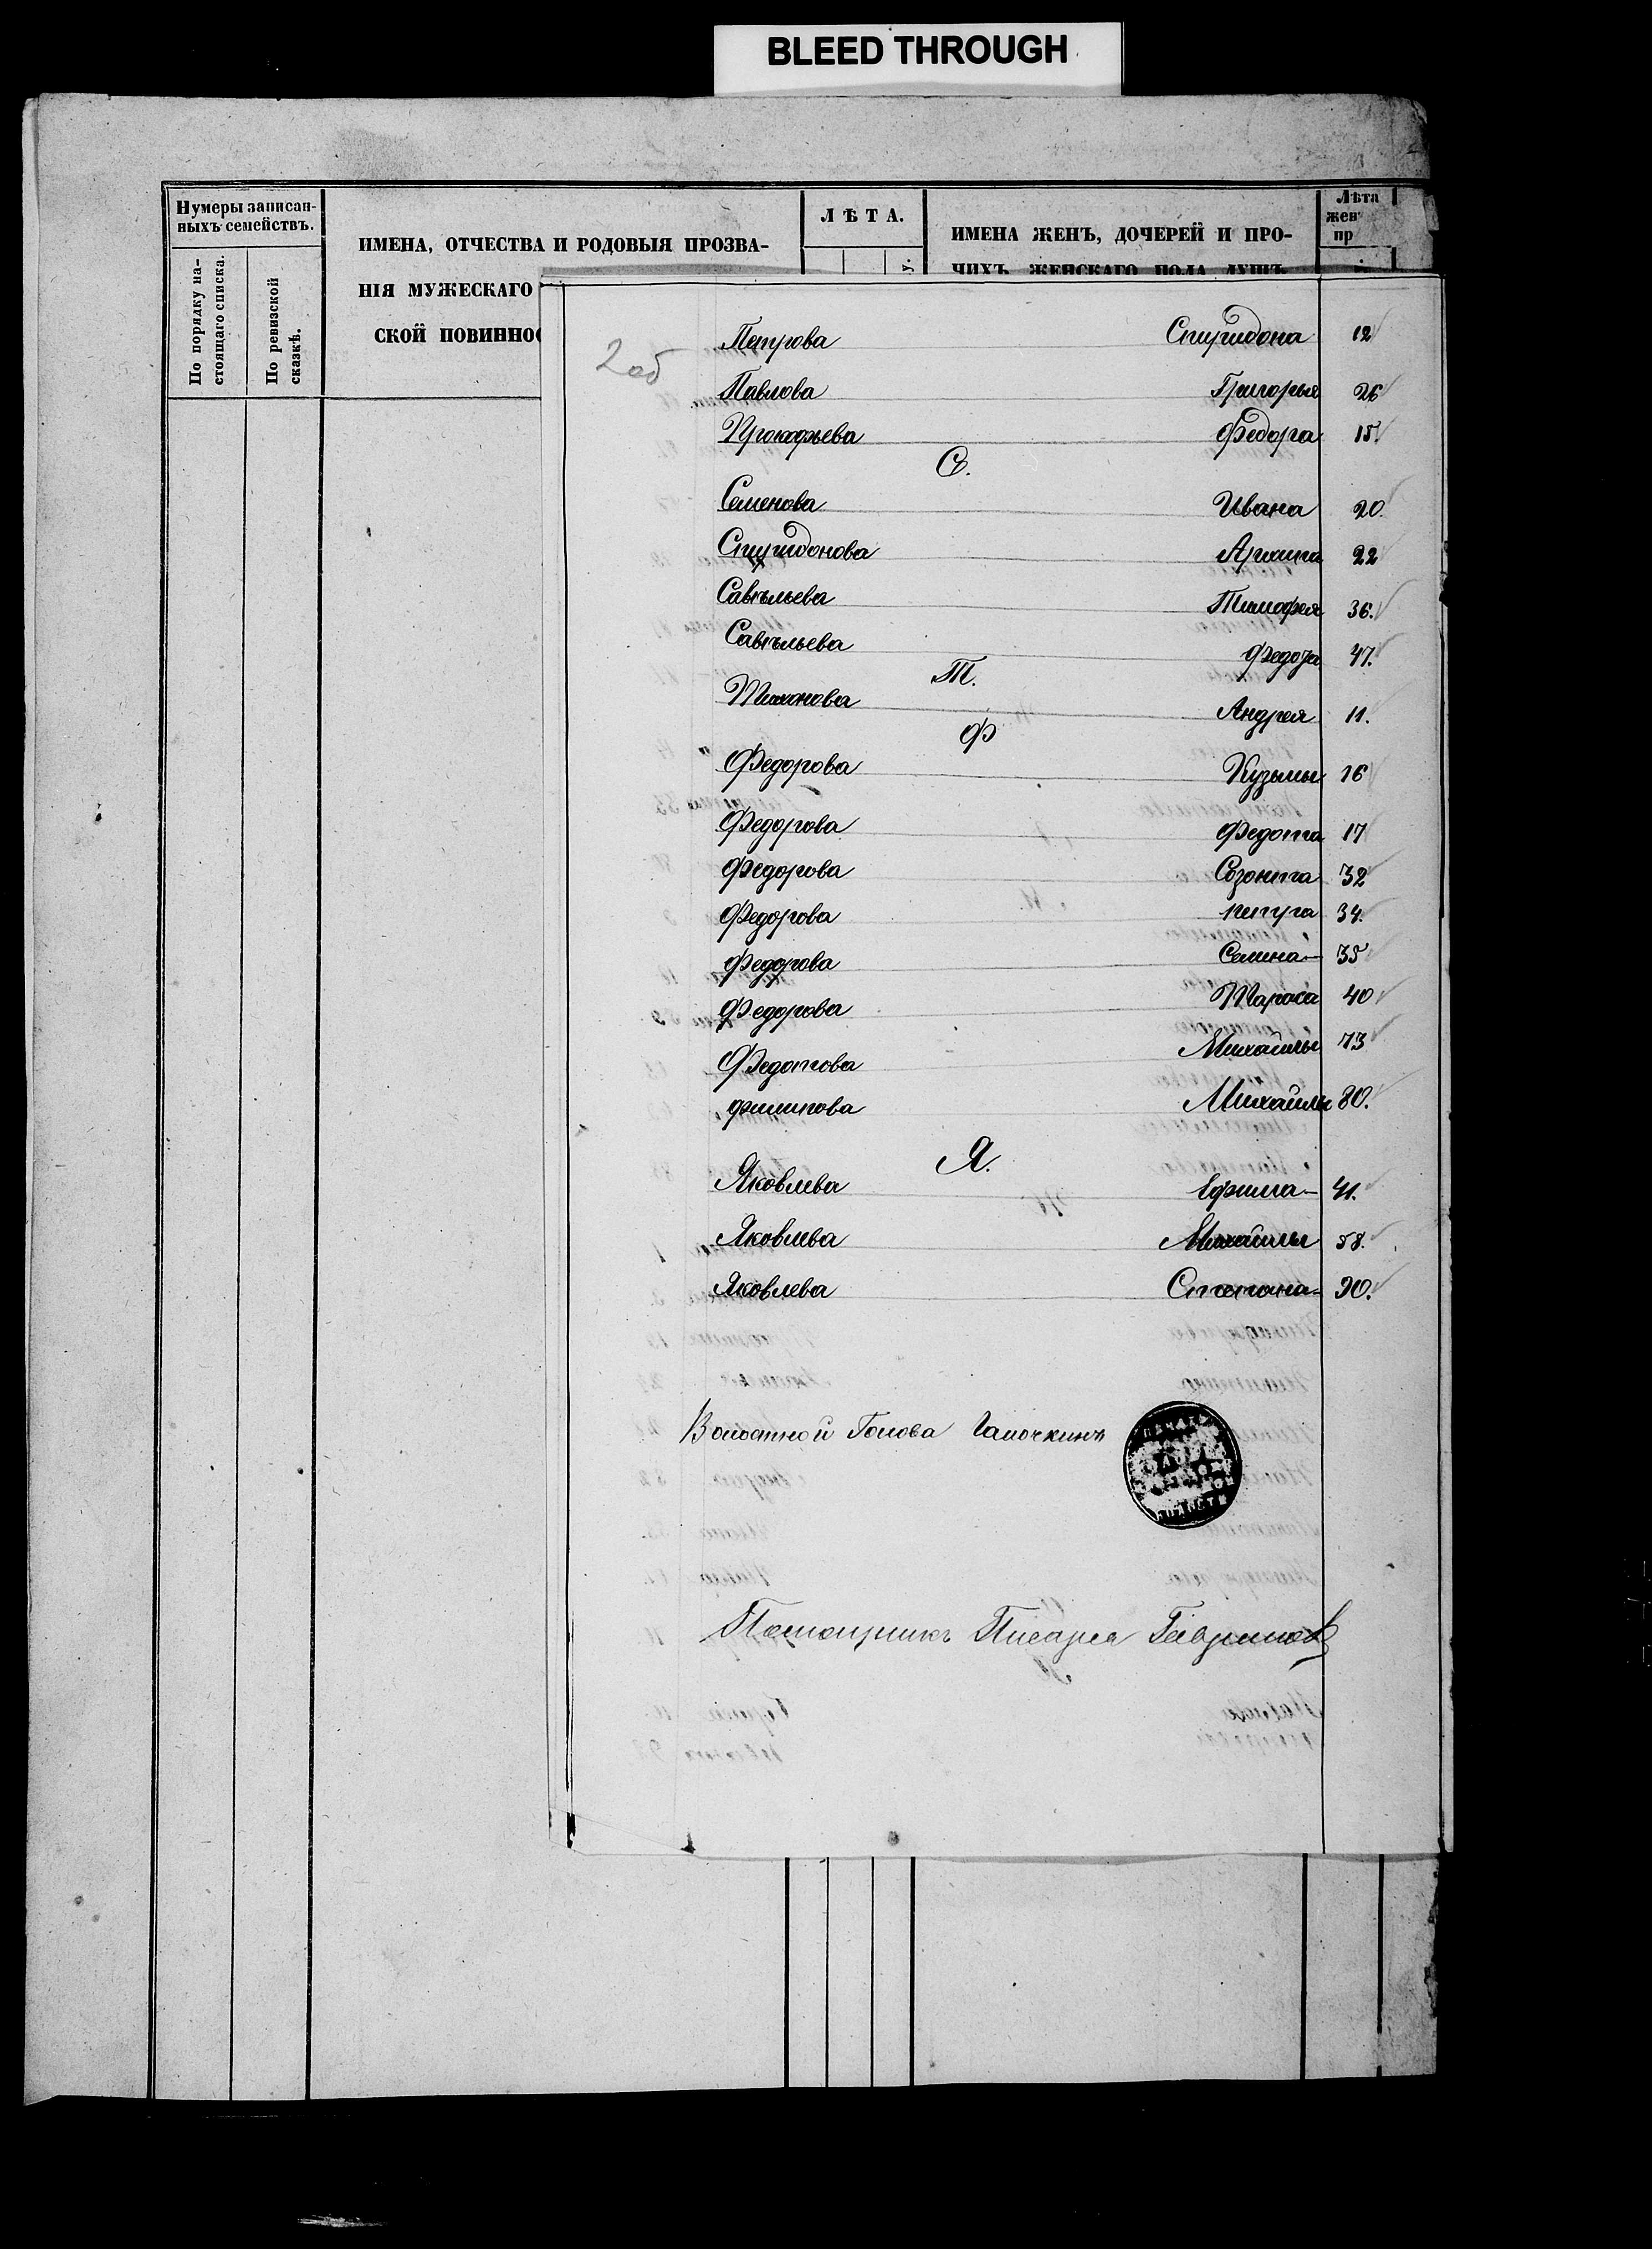 BLEED THROUGH
Нумеры записан-
ныхъ семействъ.
По порядку на-
стоящаго списка.
По ревизской
сказкѣ.
ИМЕНА, ОТЧЕСТВА И РОДОВЫЯ ПРОЗВА-
НІЯ МУЖЕСКАГО
СКОЙ ПОВИННОС
ЛѢТА.
у.
ИМЕНА ЖЕНЪ, ДОЧЕРЕЙ И ПРО-
ЧИХЪ ЖЕНСКАГО ПОЛА ДУШЪ
Лѣта
жен
пр
2об
Петрова Спиридона 12
Павлова Григорья 26
Прокофьева Федора 15.
С.
Семенова Ивана 20.
Спиридонова Архипа 22
Савѣльева Тимофея 36.
Савѣльева Федора 47.
Т.
Тихонова Андрея 11.
Ф
Федорова Кузьмы 16
Федорова Федота 17
Федорова Созонта 32
Федорова петра 34.
Федорова Семена 35
Федорова Тараса 40
Федотова Михайлы 73
филипова Михайлы 80.
Я.
Яковлева Ефима 41.
Яковлева Михайлы 58.
Яковлева Степана 90.
Волостной Голова Галочкинъ
Помощникъ Писаря Гавриловъ